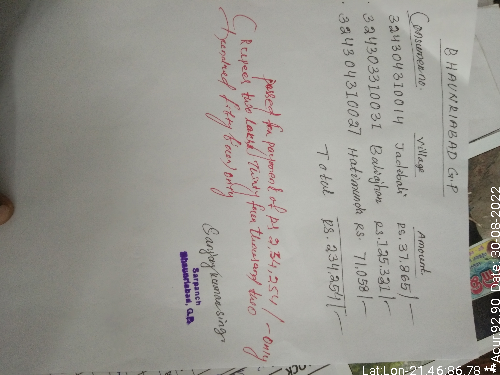 BHAUNRIABAD G.P
Consumer no. Village Amount
324304310014 Jadobali Rs. 37.865/-
324303310031 Balisghan Rs. 125.321/-
324304310027 Hatimunda Rs. 71,058/-
Total Rs. 234,254/-
passed for payment of Rs 2,34,254/- only
(Rupees two lakh thirty four thousand two
hundred fifty four) only
Sanjay kumar singh
Sarpanch
Bhaunriabad, G.P.
Lat:Lon-21.46:86.78 **Acur:92.90 Date:30-08-2022